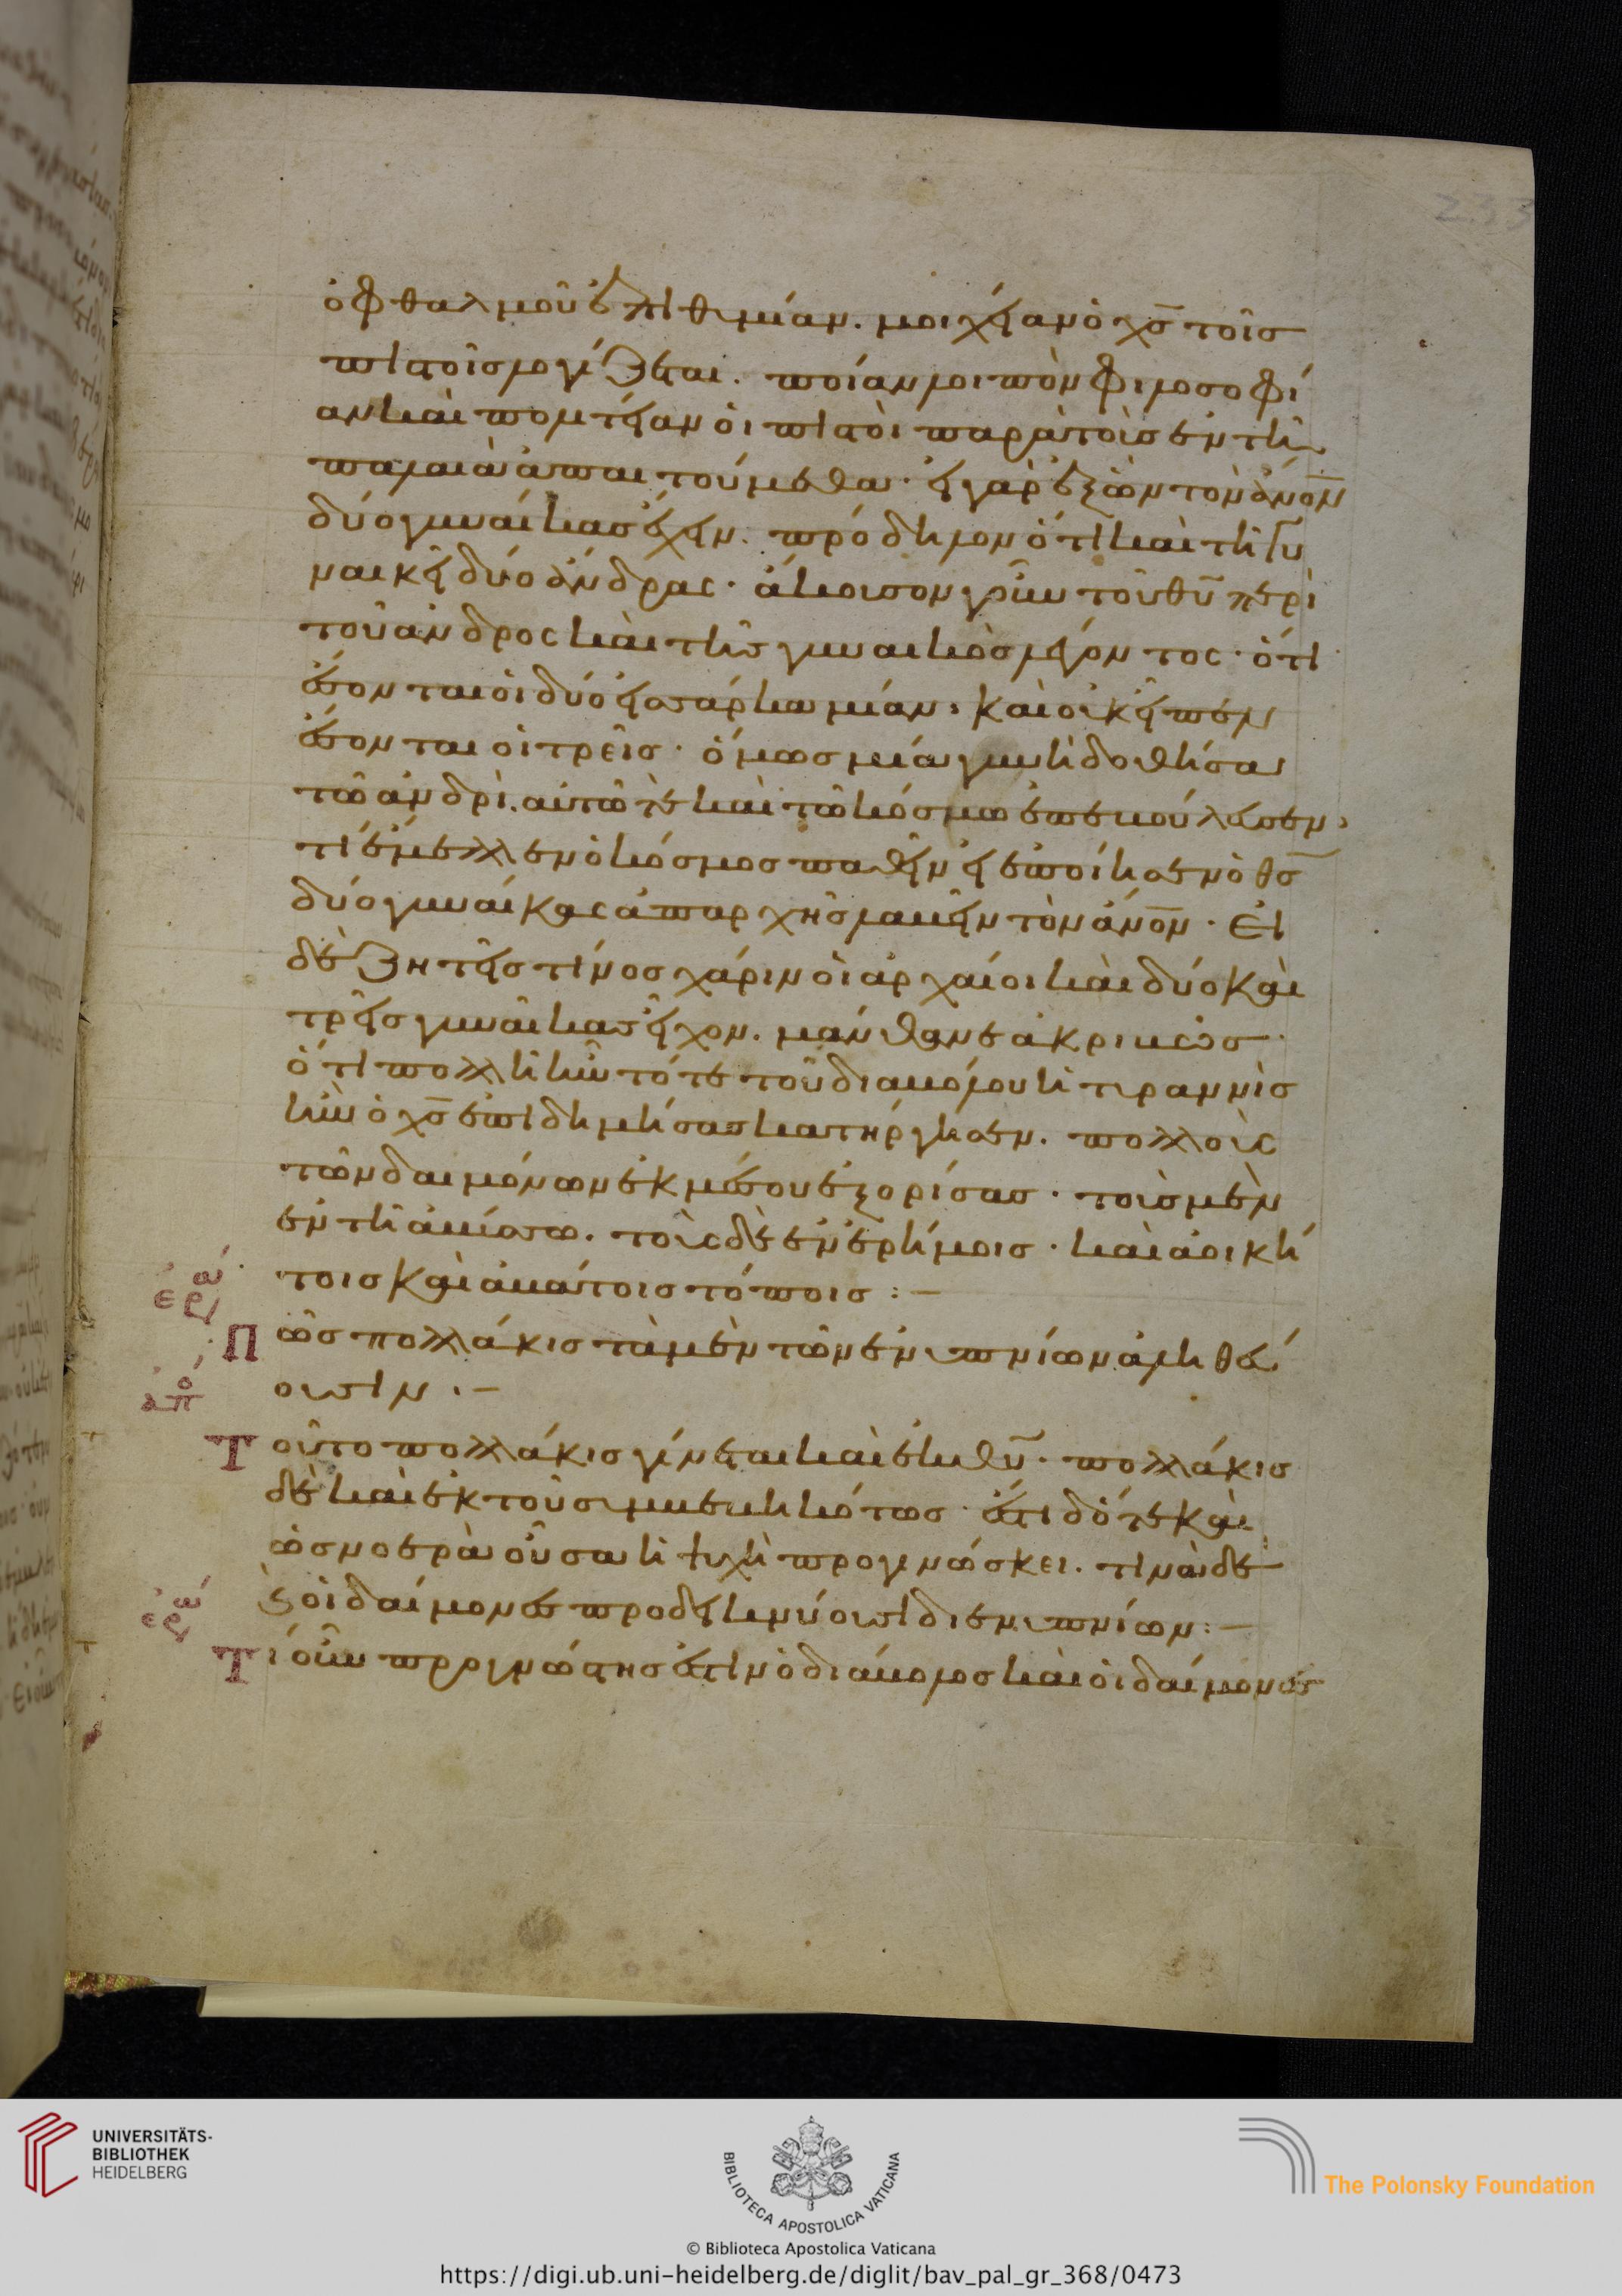 233
ὀφθαλμοῦ ἐπιθυμίαν. μοιχείαν ὁ χς̅ τοῖς
πιστοῖς λογίζεται. ποίαν λοιπὸν φιλοσοφί
αν καὶ πολιτείαν οἱ πιστοὶ παρὰ τοῖς ἐν τῆ
παλαιᾶ ἀπαιτούμεθα. εἰ γὰρ ἐξὸν τὸν ἄνο̅ν
δύο γυναίκας ἔχειν. πρόδηλον ὅτι καὶ τῆ γυ
ναικὶ δύο ἄνδρας. ἄκουσον γοῦν τοῦ θυ̅ περὶ
τοῦ ἀνδρος καὶ τῆς γυναικὸς λέγοντος. ὅτι
ἔσονται οἱ δύο εἰς σάρκα μίαν. καὶ οὐκ εἶπεν
ἔσονται οἱ τρεῖς. ὅμως μία γυνὴ δοθεῖσα
τῶ ἀνδρὶ. αὐτῶ τε καὶ τῶ κόσμω ἐπεβούλευσεν.
τί ἔμελλεν ὁ κόσμος παθεῖν εἰ ἐποίησεν ὁ θς̅
δύο γυναίκας ἀπαρχῆς λαβεῖν τὸν ἄνο̅ν. Εἰ
δὲ ζητεῖς τίνος χάριν οἱ ἀρχαῖοι καὶ δύο καὶ
τρεῖς γυναῖκας εἶχον. μάνθανε ἀκριβῶς.
ὅτι πολλὴ ἦν τότε τοῦ διαβόλου ἡ τυραννὶς
ἣν ὁ χς̅ ἐπιδημήσας κατήργησεν. πολλοὺς
τῶν δαιμόνων ἐκ μέσου ἐξορίσας. τοὺς μὲν
ἐν τῆ ἀβύσσω. τοὺς δὲ ἐν ἐρήμοις. καὶ ἀοική
τοις καὶ ἀβάτοις τόποις :—
ἐρω
Πῶς πολλάκις τὰ μὲν τῶν ἐνυπνίων ἀληθεύ
ουσιν .—
ἀπο
Τοῦτο πολλάκις γίνεται καὶ ἐκ θυ̅. πολλάκις
δὲ καὶ ἐκ τοῦ συμβεβηκότως. ἔστι δὅτε καὶ
ὡς νοερὰ οὖσα ἡ ψυχὴ προγινώσκει. τινὰ δὲ
καὶ οἱ δαίμονες προδεικνύουσι δι ἐνυπνίων :—
ἐρω
Τί οὖν προγνώστης ἐστὶν ὁ διάβολος καὶ οἱ δαίμονες
UNIVERSITÄTS-
BIBLIOTHEK
HEIDELBERG
BIBLIOTECA APOSTOLICA VATICANA
The Polonsky Foundation
© Biblioteca Apostolica Vaticana
https://digi.ub.uni-heidelberg.de/diglit/bav_pal_gr_368/0473